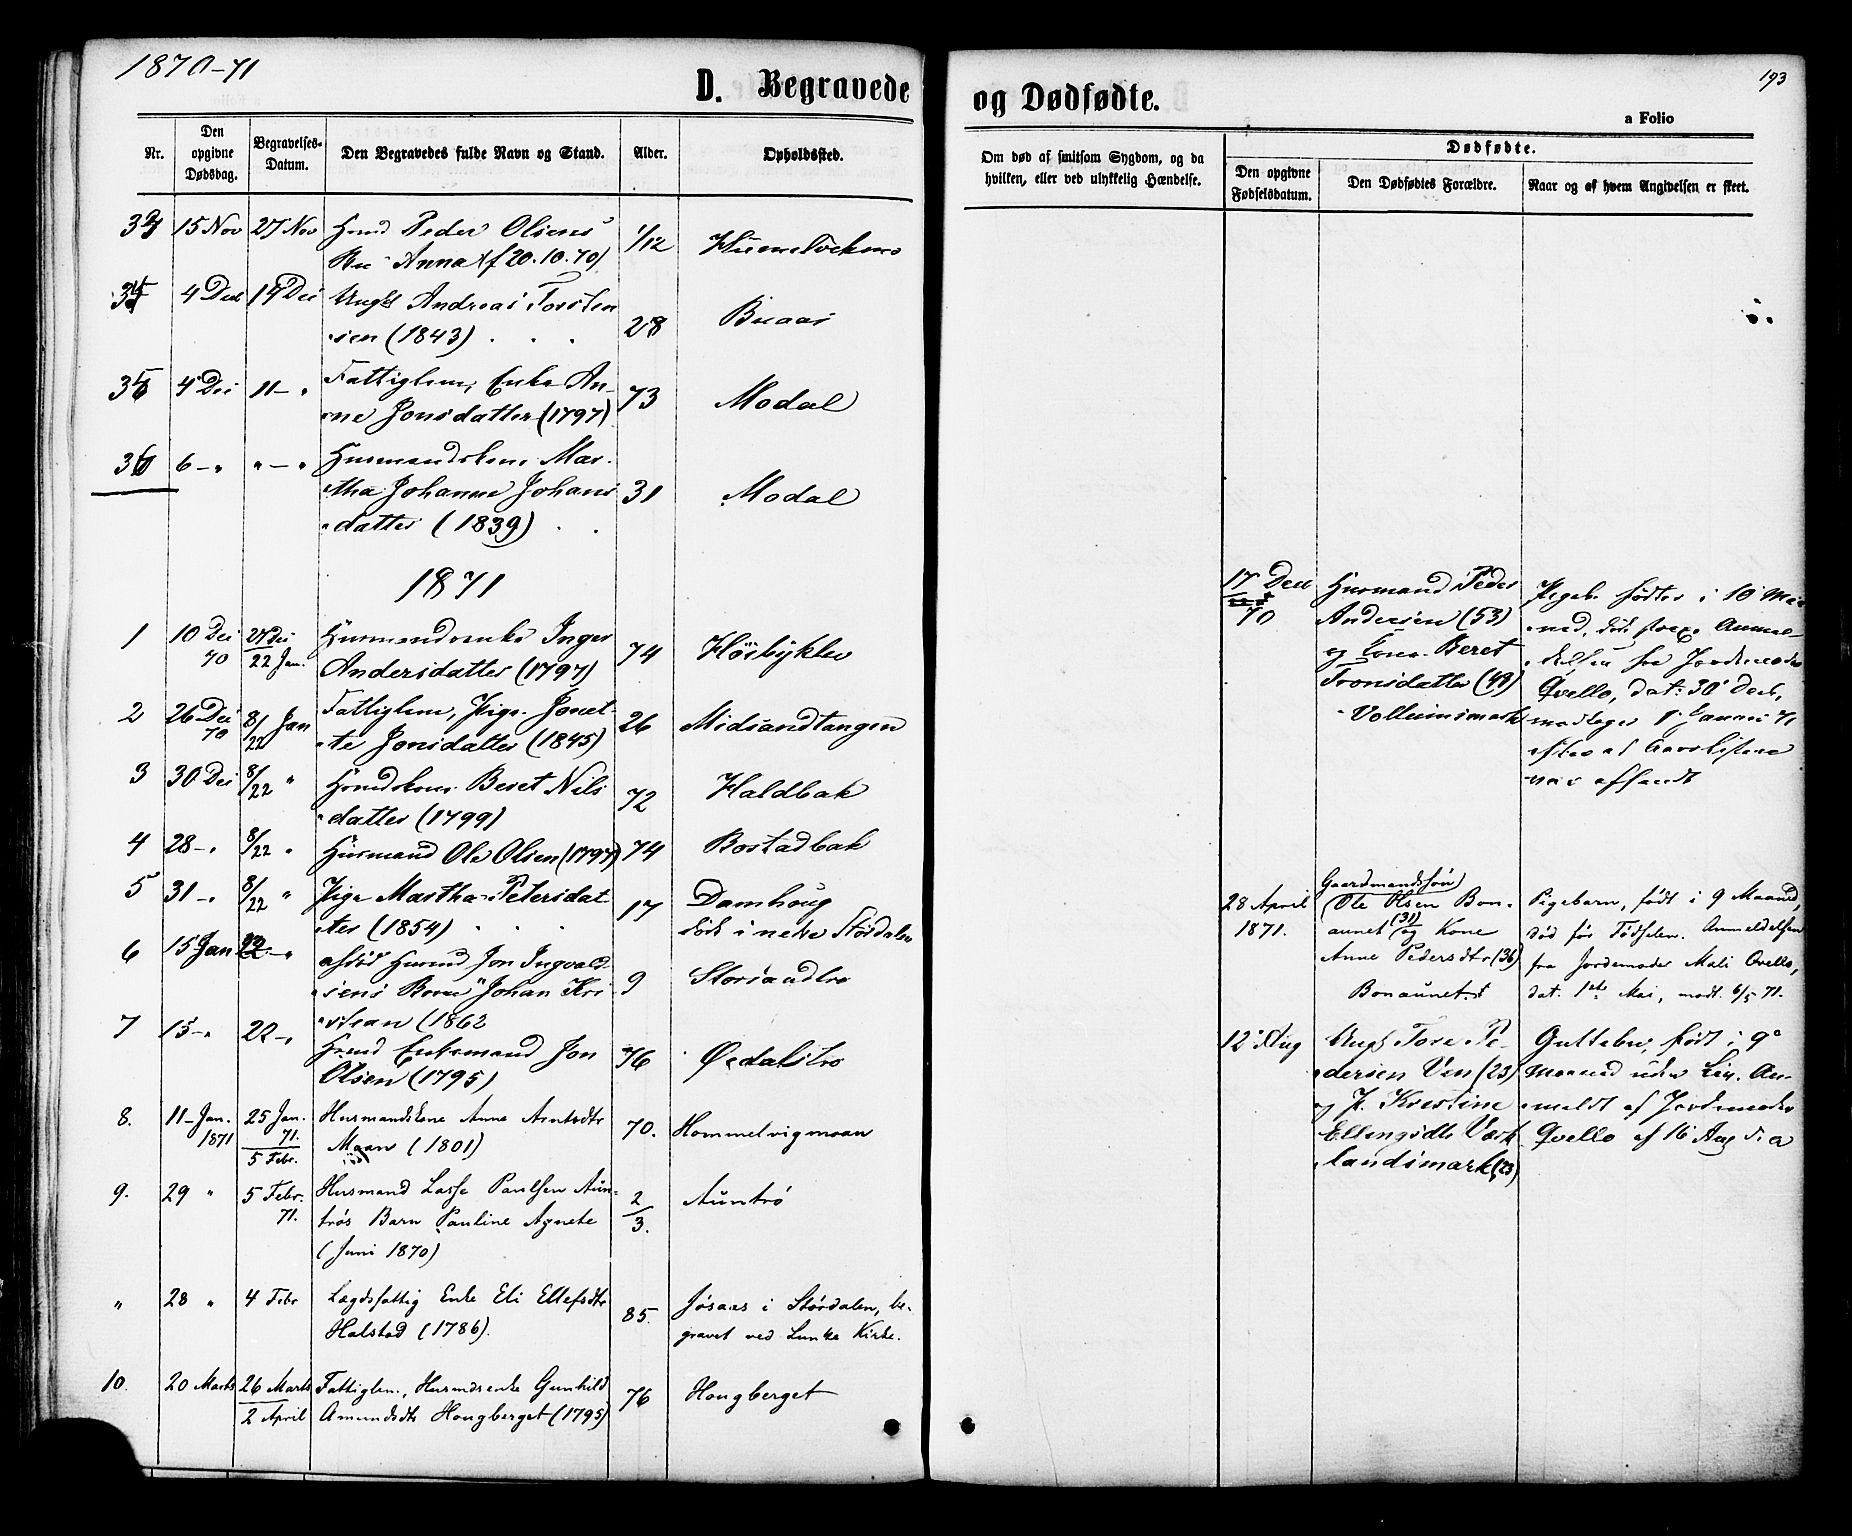 1870-71
193
D. Begravede
og Dødfødte.
a Folio
Nr.
Den opgivne Dødsdag.
Begravelses-Datum.
Den Begravedes fulde Navn og Stand.
Alder.
Opholdssted.
Om død af smitsom Sygdom, og da hvilken, eller ved ulykkelig Hændelse.
Dødfødte.
Den opgivne Fødselsdatum.
Den Dødfødtes Forældre.
Naar og af hvem Angivelsen er skeet.
15 Nov 27 Nov Peder Olsens 1/12
Anna (f 20.10.70)
4 Dec 14 Dec Ungk Andreas Torsten
sen (1843) 28 Buaas
35 4 Dec 11 - " Fattiglem, Enke An-
ne Jonsdatter (1797) 73 Modal
36 6 - " " - " Husmandskone Mar-
tha Johanna Johans 31 Modal
datter (1839)
1871
1 10 Dec 70 27 Dec 22 Jan. Husmandsenke Inger
Andersdatter (1797) 74 Høibyklev
2 26 Dec 70 8/22 Jan Fattiglem, Pige Jonet-
te Jonsdatter (1845) 26 Midsandtangen
3 30 Dec 8/22 " Beret Nils
datter (1799) 72 Haldbak
4 28 - " 8/22 " Husmand Ole Olsen (1797) 74 Bostadbak
5 31 - " 8/22 " Pige Martha Petersdat
ter (1854) 17 Damhoug
død i nedre Størdalen
6 15 Jan 22 - " Jon Ingvald-
sens Barn Johan Kri 9
stian (1862
7 15 - " 22 - " Enkemand Jon
Olsen (1795) 76
8. 11 - Jan. 1871 25 Jan. 71. 5 Febr. Husmandskone Anne Arntsdtr
Moan (1801) 70. Hommelvigmoan
9. 29 " 5 Febr. 71. Husmand Lasse Paulsen Aun-
trøs Barn Pauline Agnete 2/3. Auntrø
(Juni 1870)
" 28 " 4 Febr Lægdsfattig Enke Eli Ellefsdtr
Halstad (1786). 85. Jøsaas i Størdalen, be-
gravet ved Lunke Kirke.
10. 20 Marts 26 Marts 2 April Fattiglem, Husmdsenke Gunhild
Amundsdtr Hougberget (1795) 76 Hougberget
17 Dec 70
Husmand Peder
Andersen (53)
og Kone Beret
Tronsdatter (48)
Pigeb. født i 10 Maa
ned, død
fra Jordemoder
Qvello, dat: 30 Decb,
modtaget
efter at Aarslisterne
var afsendt
28 April 1871.
Gaardmandssøn
Ole Olsen Bon-
aunet (31) og Kone
Anne Pedersdtr (36)
Bonaunet.
Pigebarn, født i 9 Maaned,
død før Fødselen. Anmeldelsen
fra Jordemoder Mali Qvello,
dat. 1ste Mai, modt. 6/5 71.
12 Aug
Ungk Tore Pe-
dersen Ven (23)
og P. Kristine
Ellingsdtr
landsmark (23)
Guttebn, født i 9
Maaned uden Liv. An-
meldt af Jordemoder
Qvello af 16 Aug